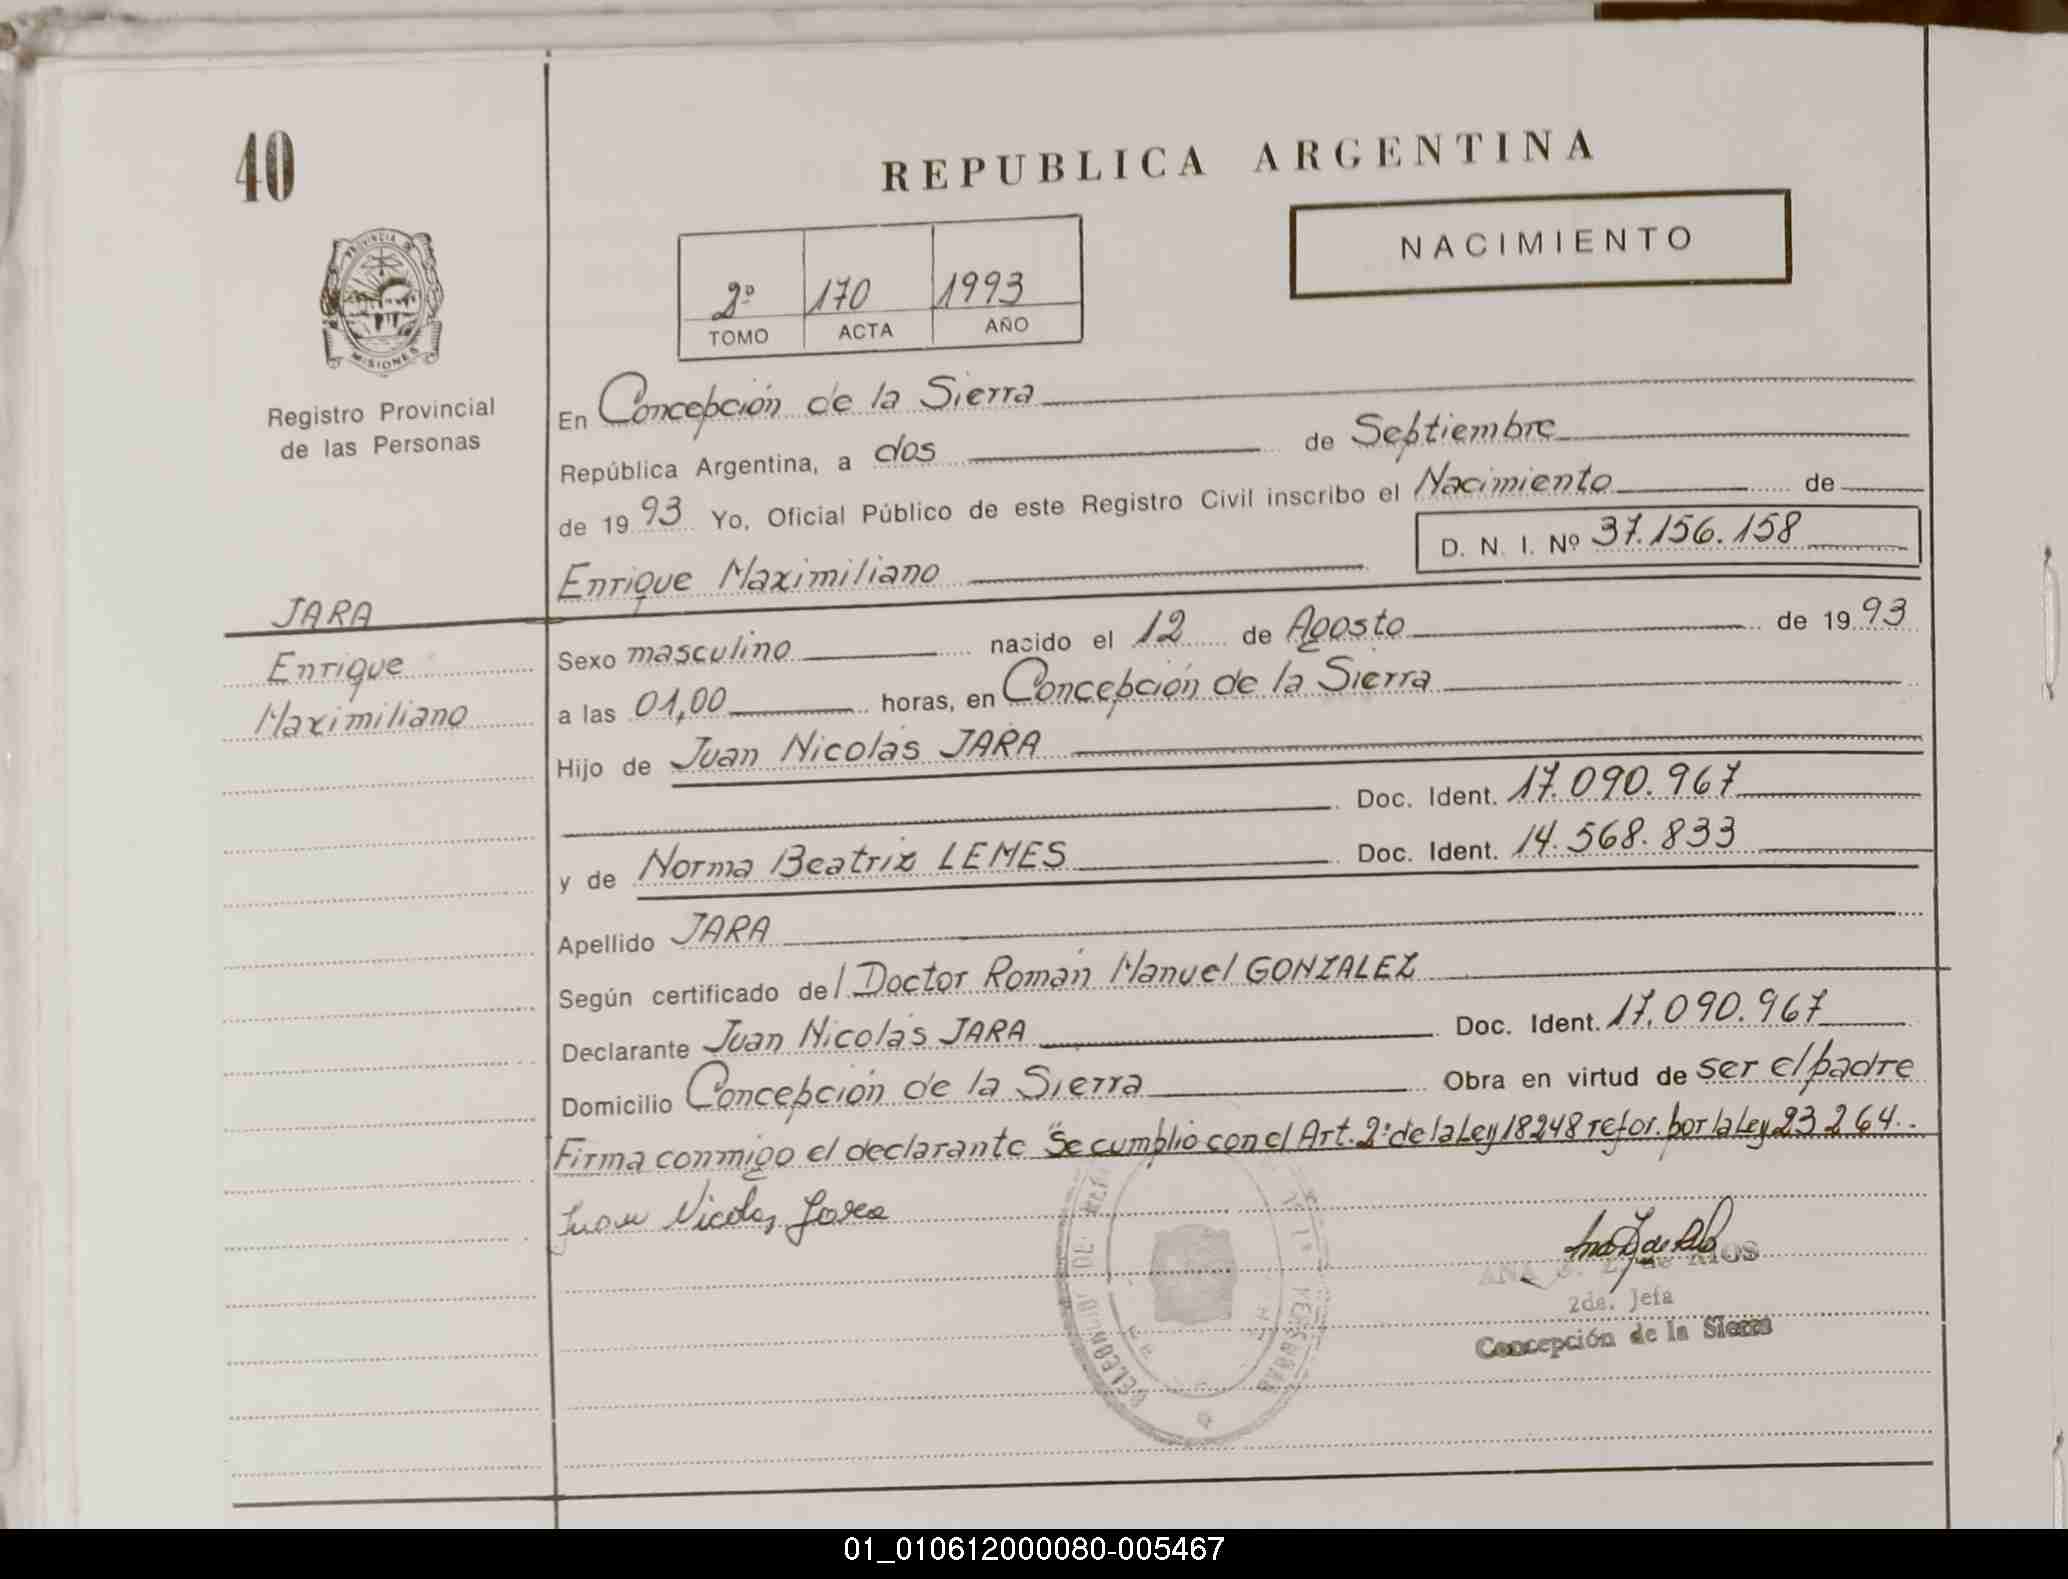 40
REPUBLICA ARGENTINA
NACIMIENTO
2º 170 1993
TOMO ACTA AÑO
PROVINCIA DE
MISIONES
Registro Provincial
de las Personas
En Concepción de la Sierra
República Argentina, a dos de Septiembre
de 1993 Yo, Oficial Público de este Registro Civil inscribo el Nacimiento de
D. N. I. Nº 37.156.158
Enrique Maximiliano
JARA
Enrique
Maximiliano
Sexo masculino nacido el 12 de Agosto de 1993
a las 01,00 horas, en Concepción de la Sierra
Hijo de Juan Nicolás JARA
Doc. Ident. 17.090.967
y de Norma Beatriz LEMES Doc. Ident. 14.568.833
Apellido JARA
Según certificado del Doctor Román Manuel GONZALEZ
Declarante Juan Nicolás JARA Doc. Ident. 17.090.967
Domicilio Concepción de la Sierra Obra en virtud de ser el padre
Firma conmigo el declarante "Se cumplió con el Art. 2º de la Ley 18248 refor. por la Ley 23264..
Juan Nicolas Jara
ANA de RIOS
2da. Jefa
Concepción de la Sierra
01_010612000080-005467